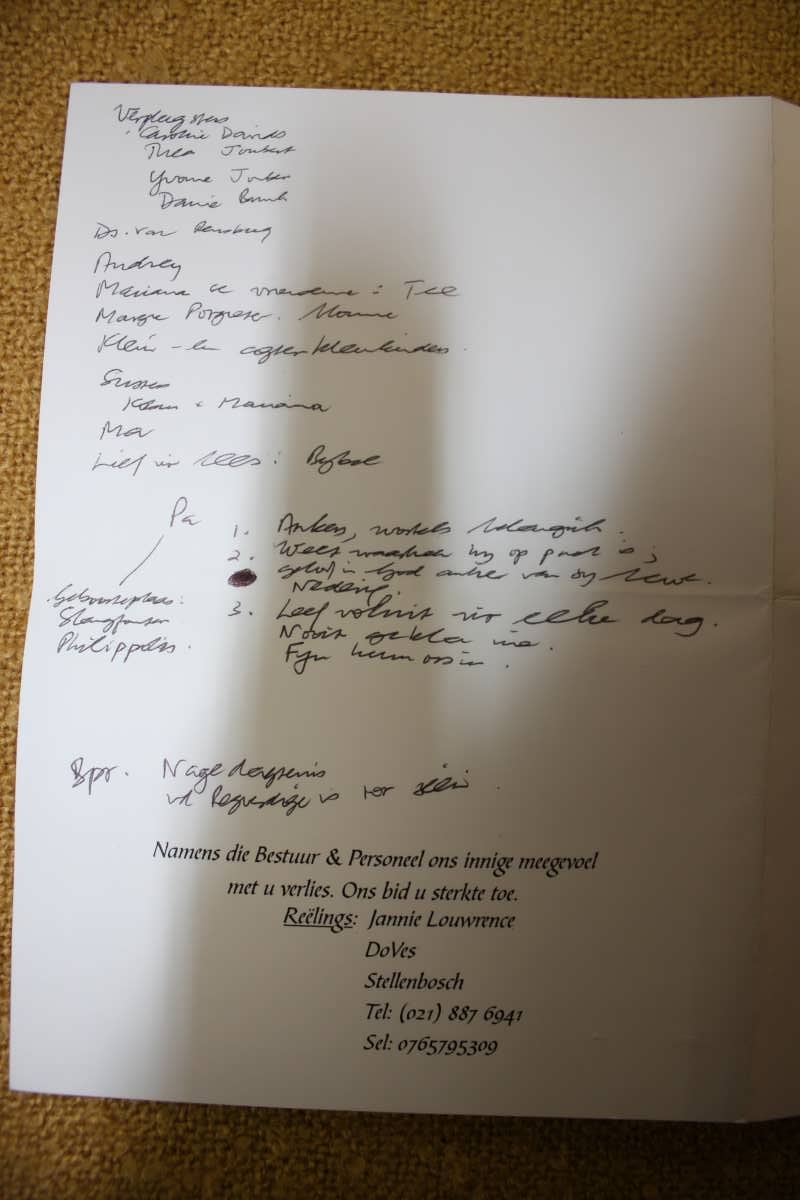 Verpleegsters
Caroline Davids
Thea Joubert
Yvonne
Danie
Ds. van Rensburg
Audrey
Mariana se vriendinne : Tee
Margie
Klein - en agterkleinkinders
Sussa
Mariana
Ma
Lief vir lees : Bybel
Pa
1. Anker, wortels belangrik.
2. Weet waarheen hy op pad is ;
geloof in God anker van sy lewe.
Nederig.
3. Leef voluit vir elke dag.
Nooit gekla nie.
Fyn humorsin.
Geboorteplaas :
Slangfontein
Philippolis.
Spr. Nagedagtenis
vd Regverdige is tot seën.
Namens die Bestuur & Personeel ons innige meegevoel
met u verlies. Ons bid u sterkte toe.
Reëlings: Jannie Louwrence
DoVes
Stellenbosch
Tel: (021) 887 6941
Sel: 0765795309